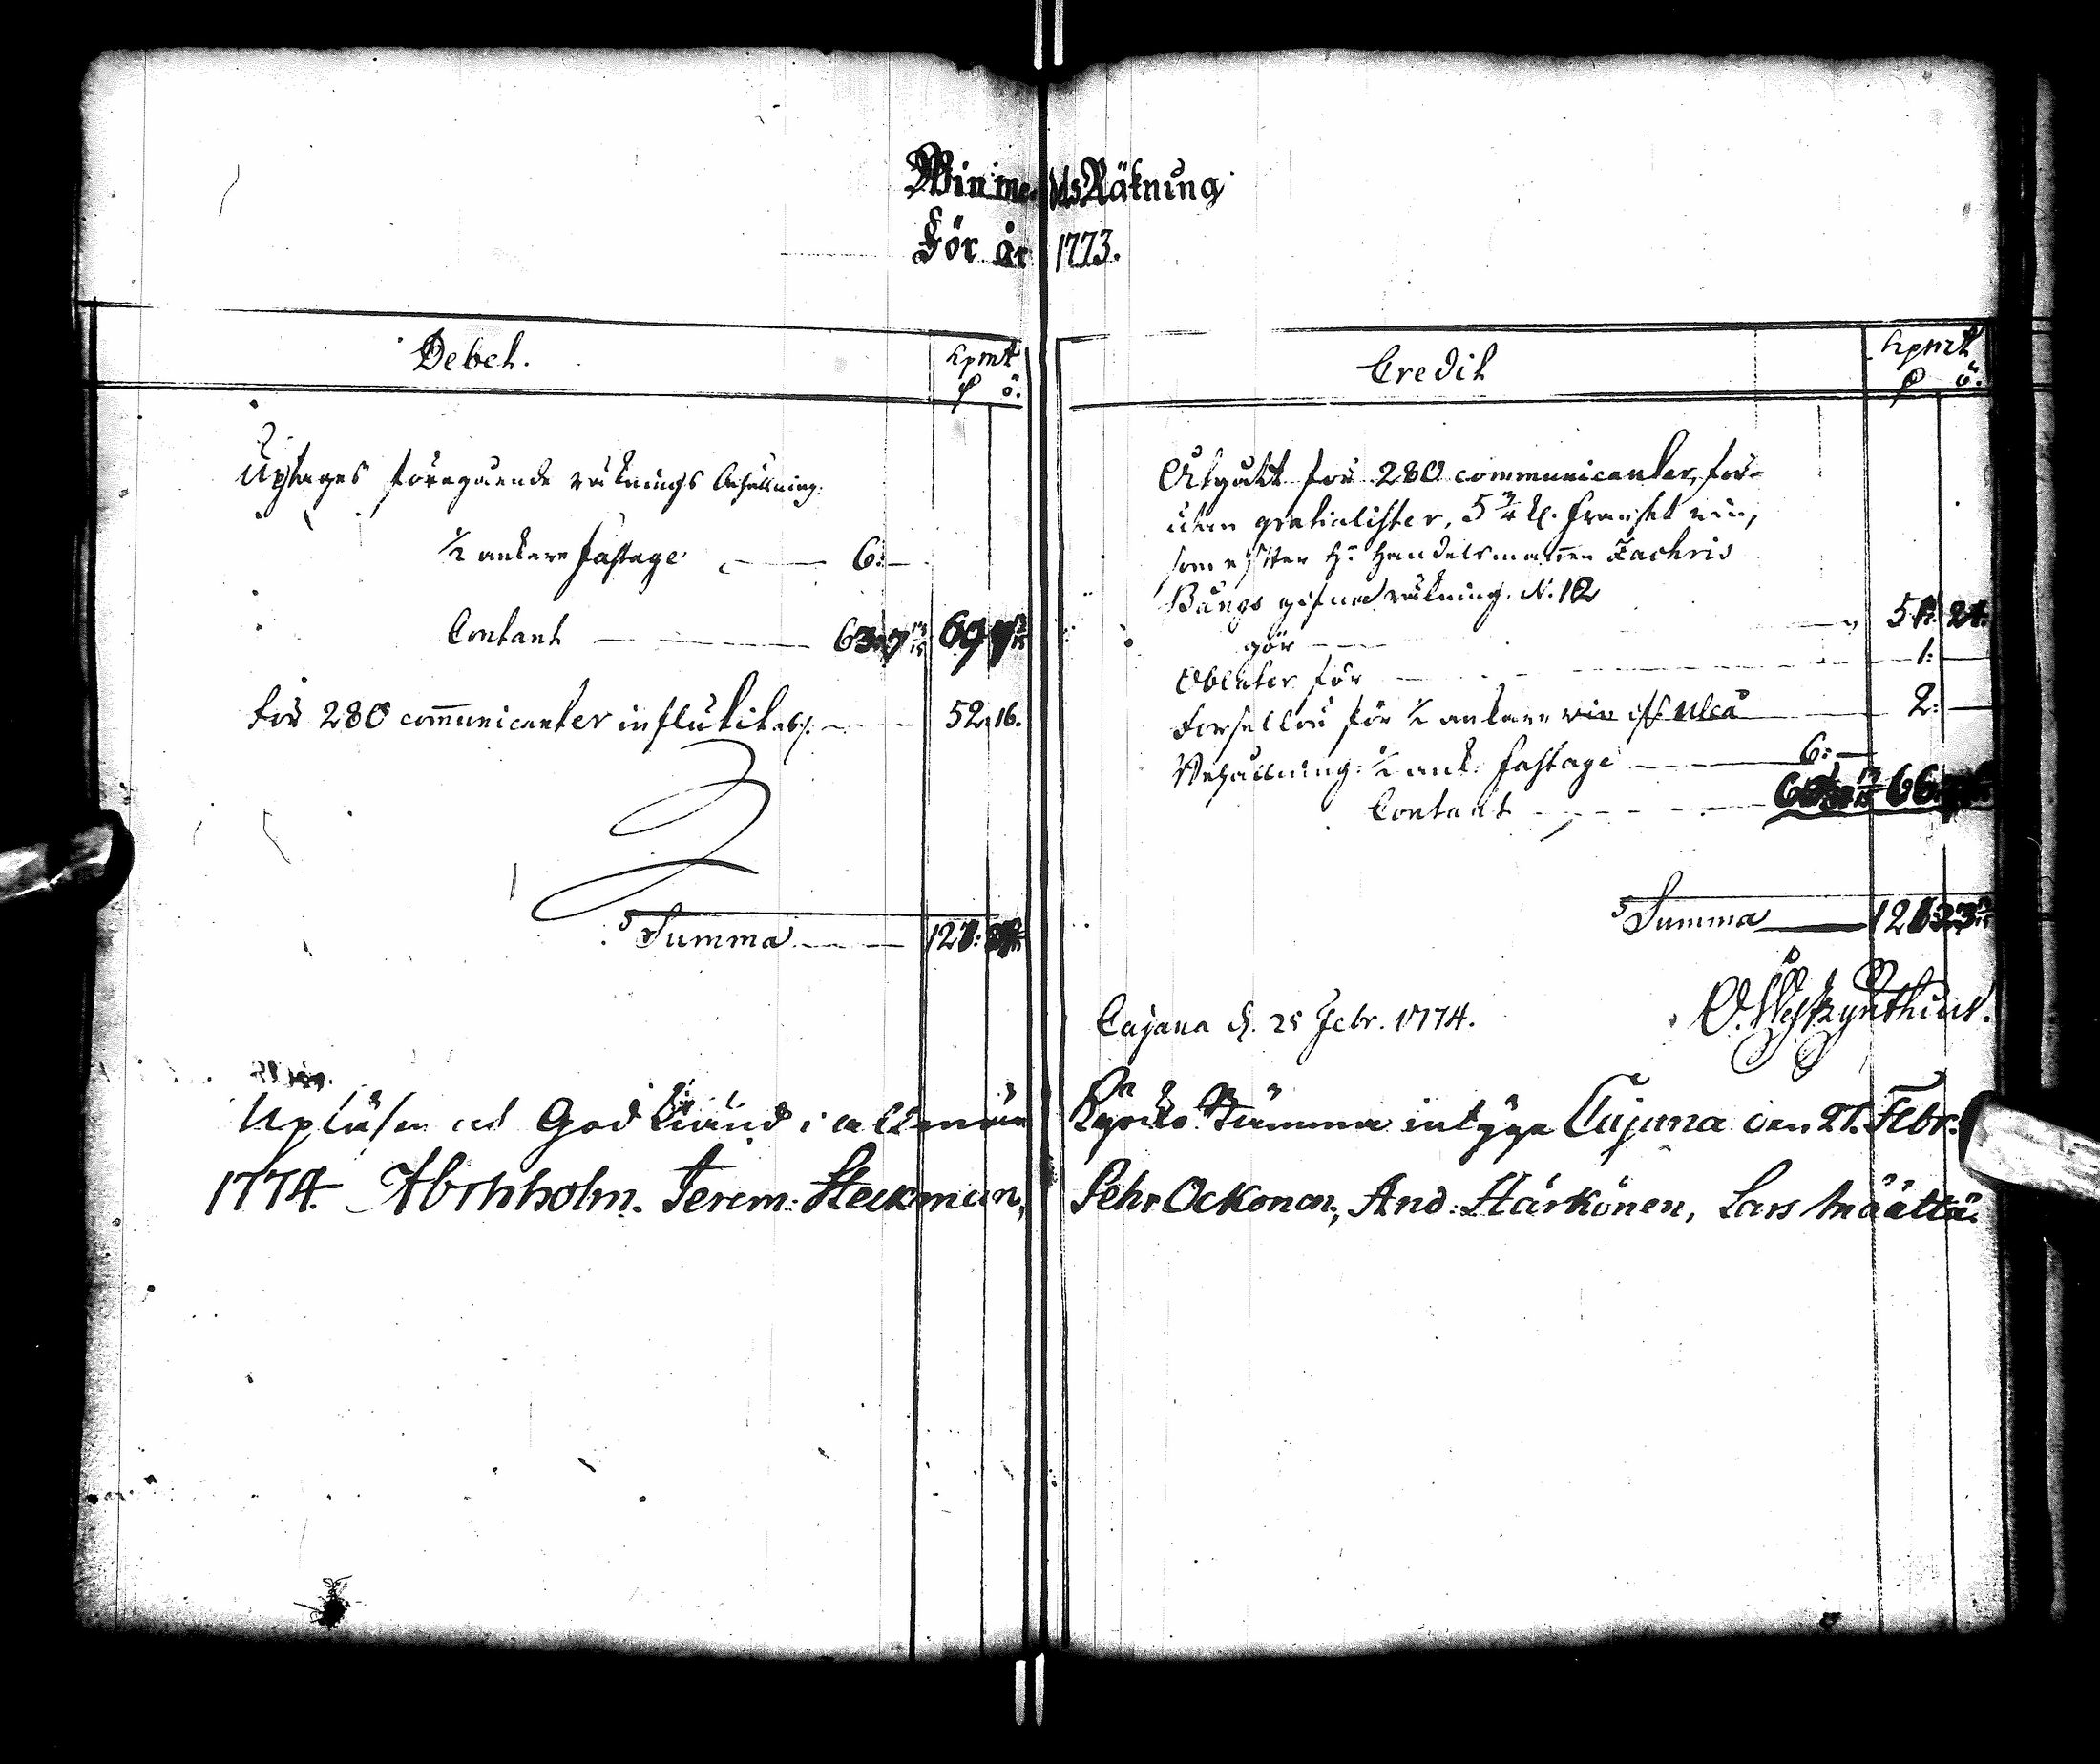 Winmedels Räkning
För år 1773.
Debet.
kpmt
ö.
Uptages föregående räknings Behållning:
1/2 ankare fastage 6:—
Contant
för 280 communicanter influtit 52:16.
Summa
Credit
kpmt
ö.
Utgått för 280 communicanter, för-
utan gratialister, 5 3/4 franskt vin,
som efter Hr Handelsmannen Zachris
Bångs gifna räkning N. 12
gör
Oblater för 1:—
Forsellön för 1/2 ankare vin ifr. Uleå 2:—
Behållning: 1/2 ank: fastage 6:—
Contant
Summa
Cajana d. 25 Febr. 1774.
Upläsen och Godkiänd i allmän Kyrko Stämma intyga Cajana den 27. Febr.
1774. Jerem: Steckman, Pehr Ockonen, And: Härkönen, Lars Määttä.